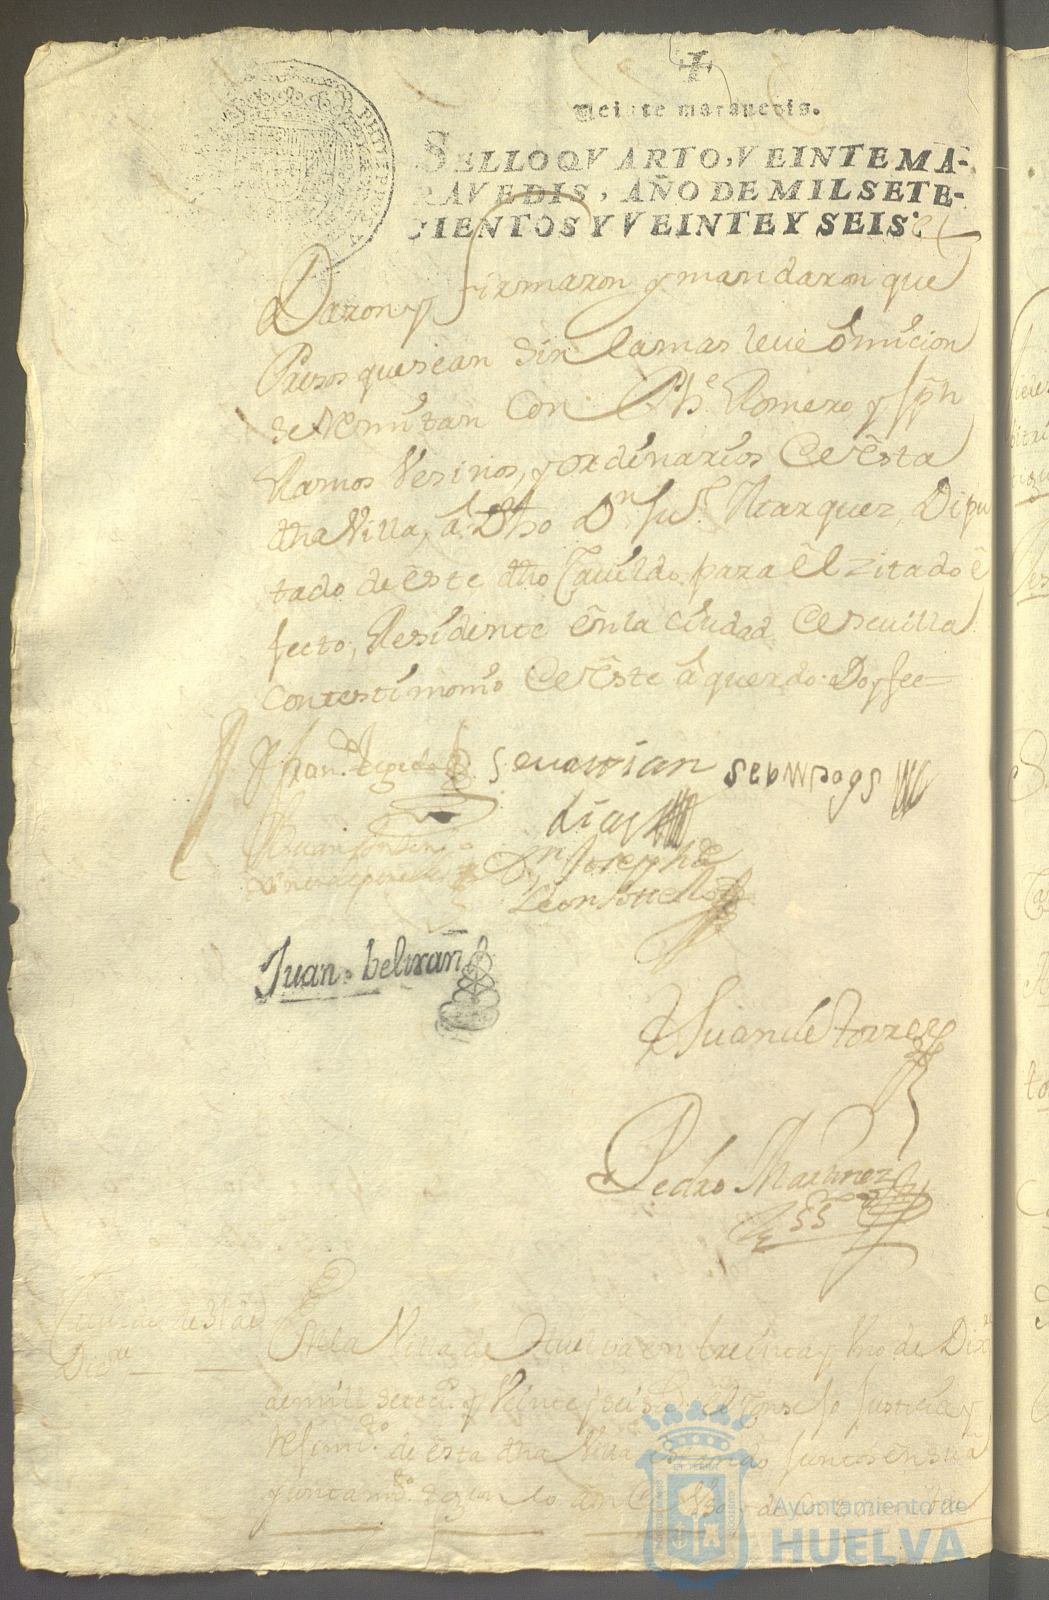 Veinte marauedis.
SELLO QVARTO, VEINTE MA-
RAVEDIS, AÑO DE MIL SETE-
CIENTOS Y VEINTE Y SEIS.
Daron y firmaron y mandaron que
Presos que sean sin la mas leue omicion
se Remitan con Ph.e Romero y Jph
Ramos Vesinos, y ordinarios de esta
dha Villa, a dho Dn Ju.n Marquez, Dipu
tado de este dho Cauildo para el zitado e
fecto, Residente en la ciudad de seuilla
con testimonio de este aquerdo. Doy fee
seuastian
dias
Dn Joseph de
Leon
Juan beltran
Juan de Torres
Pedro Martinez
Cauildo de 31 de
Dizre
En la Villa de Huelva en treinta y Uno de Dizre
de mill setect.s y Veinte y seis el Consejo Justicia y
Resimto de esta dha Villa estando juntos en su a
yuntamto segun lo an de Uso y de Costumbre
Ayuntamiento de
HUELVA